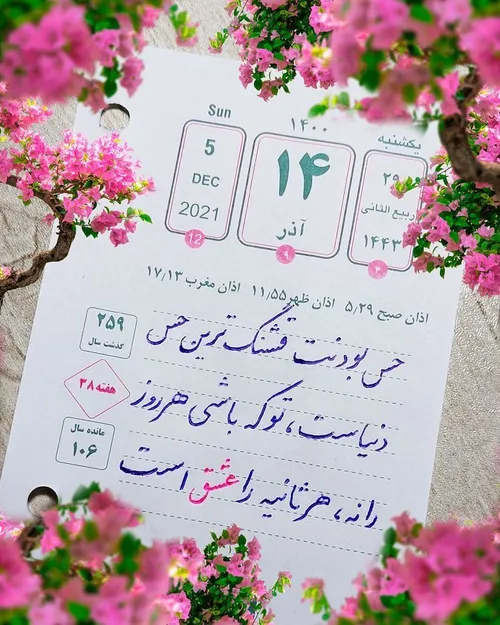 Sun
5
DEC
2021
12
۱۴۰۰
۱۴
آذر
۹
یکشنبه
۲۹
ربیع الثانی
۱۴۴۳
اذان صبح ۵٫۲۹ اذان ظهر ۱۱٫۵۵ اذان مغرب ۱۷٫۱۳
۲۵۹
گذشت سال
هفته ۳۸
مانده سال
۱۰۶
حس بودنت قشنگ ترین حس
دنیاست، تو که باشی هر روز
را نه، هر ثانیه را عشق است